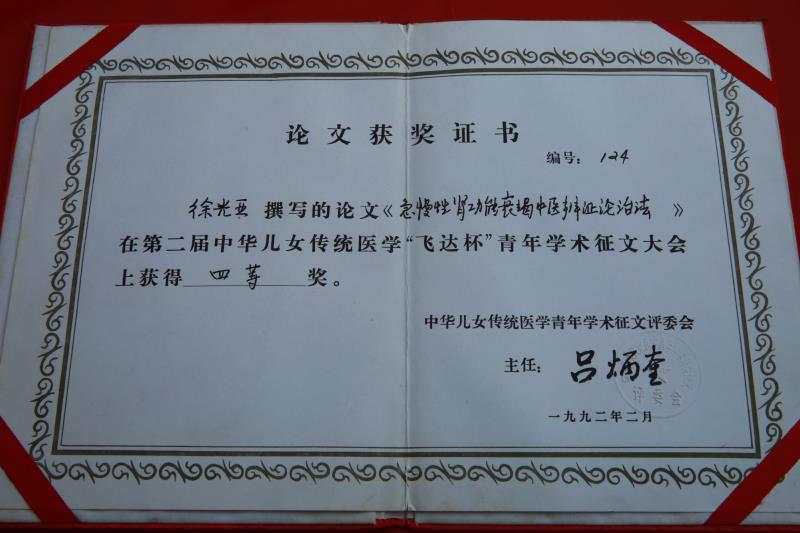 论文获奖证书
编号：124
徐光亚 撰写的论文《急慢性肾功能衰竭中医辨证论治法》
在第二届中华儿女传统医学“飞达杯”青年学术征文大会
上获得 四等 奖。
中华儿女传统医学青年学术征文评委会
主任：吕炳奎
评委会
一九九二年二月